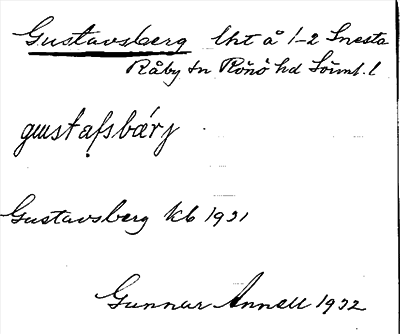 Gustavsberg lht å 1-2 Snesta
Råby sn Rönö hd Södml. l
gustafsbärj
Gustavsberg kb 1931
Gunnar Annell 1932